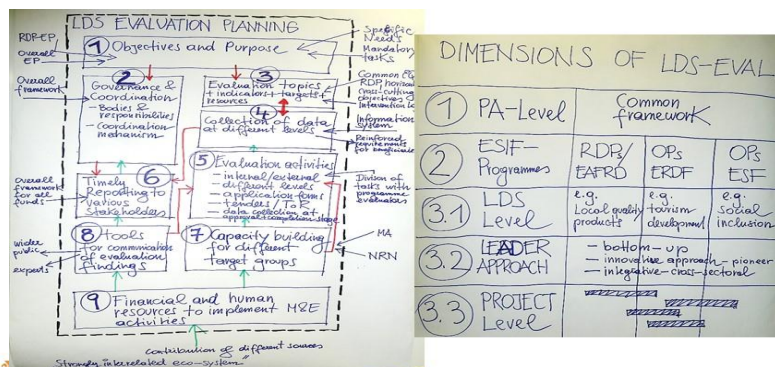 LDS EVALUATION PLANNING
RDP-EP/
Overall
EP
① Objectives and Purpose
Specific
Needs
Mandatory
tasks
Overall
framework
②
Governance &
Coordination
- Bodies &
responsibilities
- Coordination
mechanism
③
Evaluation topics
+ indicators + targets +
resources
④
Collection of data
at different levels
RDP, horizon
cross-cutting
objectives of
Information
system
Reinforced
requirements
for beneficiaries
⑤ Evaluation activities
- internal/external
- different levels
- application-forms
- tenders/ToR
- data collection at
approval+completion stage
Division of
tasks with
programme
evaluators
Overall
framework
for all
funds
⑥
Timely
Reporting to
various
Stakeholders
wider
public
experts
⑧ tools
for communication
of evaluation
findings
⑦ Capacity building
for different
target groups
MA
NRN
⑨ Financial and human
resources to implement M&E
activities
contribution of different sources
"Strongly interrelated eco-system"
DIMENSIONS OF LDS-EVAL
① PA-Level
Common
framework
② ESIF-
Programmes
RDPs/
EAFRD
OPs
ERDF
OPs
ESF
3.1 LDS
Level
e.g.
Local quality
products
e.g.
tourism
development
e.g.
social
inclusion
3.2 LEADER
APPROACH
- bottom-up
- innovative approach - pioneer
- integrative-cross-sectoral
3.3 PROJECT
Level